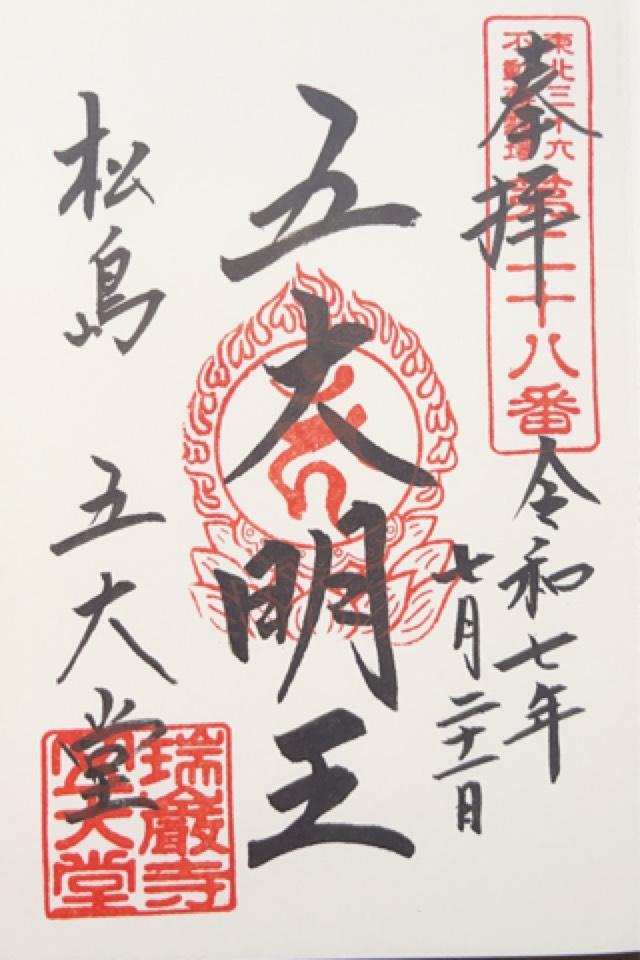 東北三十六
不動尊霊場
第二十八番
奉拝
令和七年
七月二十一日
五大明王
松島 五大堂
瑞巌寺
五大堂